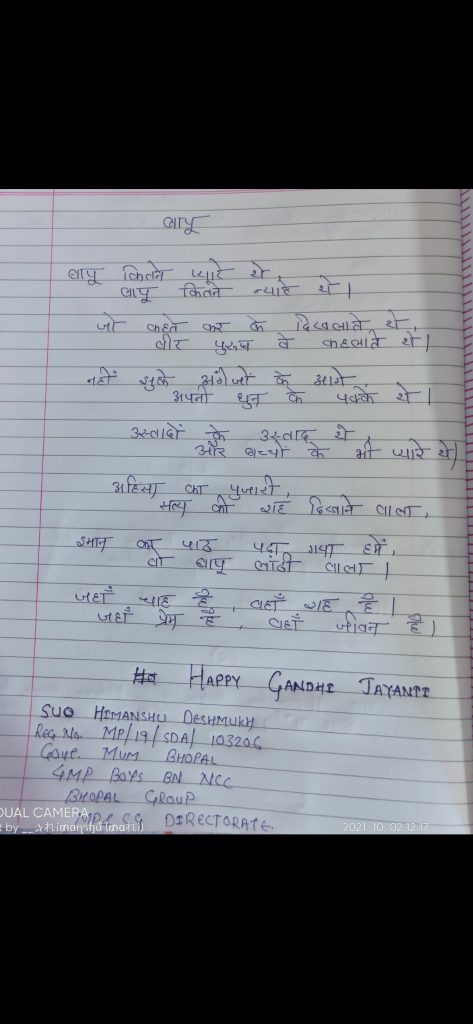 बापू
बापू कितने प्यारे थे,
बापू कितने न्यारे थे।
जो कहते कर के दिखलाते थे,
वीर पुरुष वे कहलाते थे।
नहीं झुके अंग्रेजों के आगे,
अपनी धुन के पक्के थे।
उस्तादों के उस्ताद थे,
और बच्चों के भी प्यारे थे।
अहिंसा का पुजारी,
सत्य की राह दिखाने वाला,
इमान का पाठ पढ़ा गया हमें,
वो बापू लाठी वाला।
जहाँ चाह है, वहाँ राह है।
जहाँ प्रेम है, वहाँ जीवन है।
HAPPY GANDHI JAYANTI
SUO HIMANSHU DESHMUKH
Reg No. MP/19/SDA/103206
Govt. MVM BHOPAL
4MP BOYS BN NCC
BHOPAL GROUP
DIRECTORATE
DUAL CAMERA
by __Himanshu (mahi)
2021.10.02 12:17